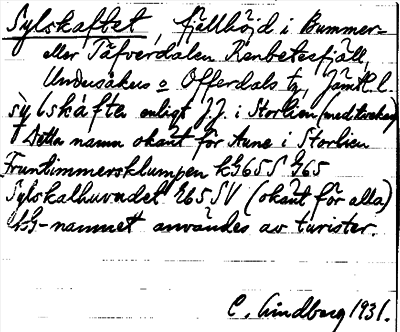 Sylskaftet, fjellhöjd i Bummer-
eller Täfverdalen Renbetesfjäll,
Undersåkers o Offerdals tg, Jämtl. l.
sỳlskáftə enligt J.J. i Storlien (med tvekan)
Detta namn okänt för Aune i Storlien
Fruntimmersklumpen kG65S G65
Sylskalhuvudet E65 SV (okänt för alla)
kG-namnet användes av turister.
C. Lindberg 1931.